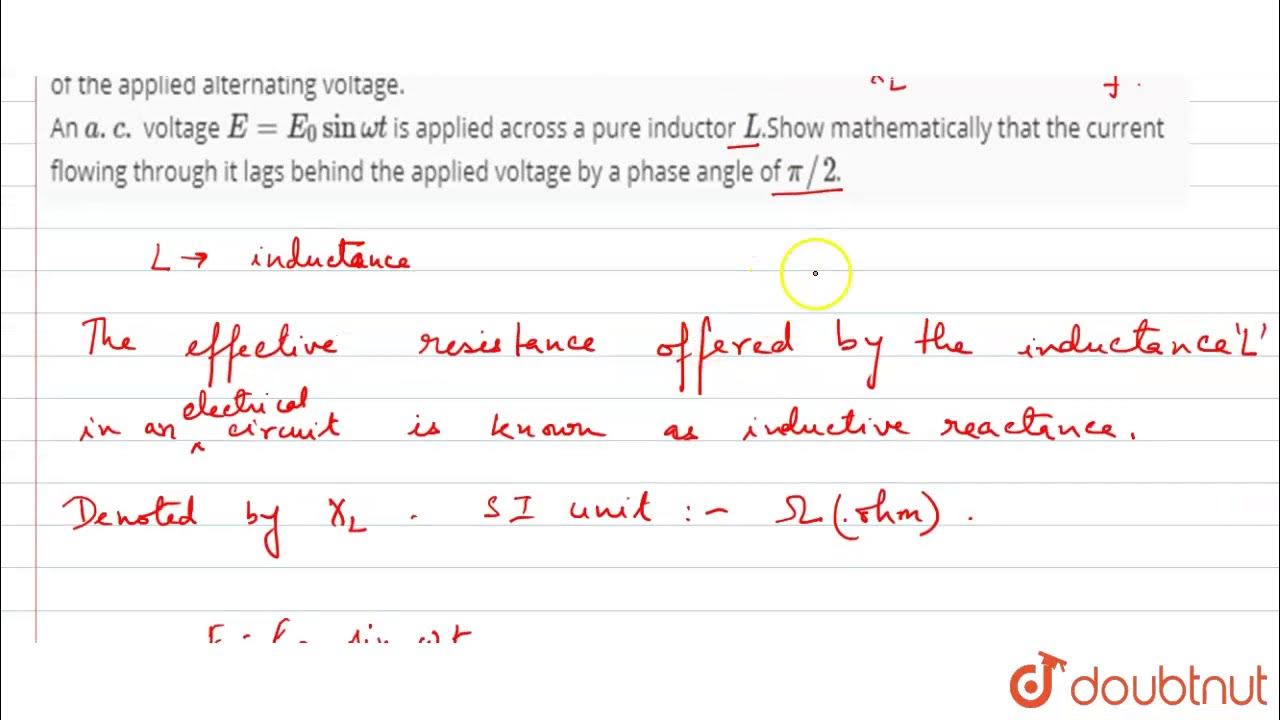 of the applied alternating voltage.
X_L f.
An a. c. voltage E = E₀ sin ωt is applied across a pure inductor L.Show mathematically that the current
flowing through it lags behind the applied voltage by a phase angle of π/2.
L → inductance
The effective resistance offered by the inductance 'L'
in an electrical circuit is known as inductive reactance.
Denoted by X_L . SI unit :- Ω (ohm) .
E = E₀ sin ωt
doubtnut